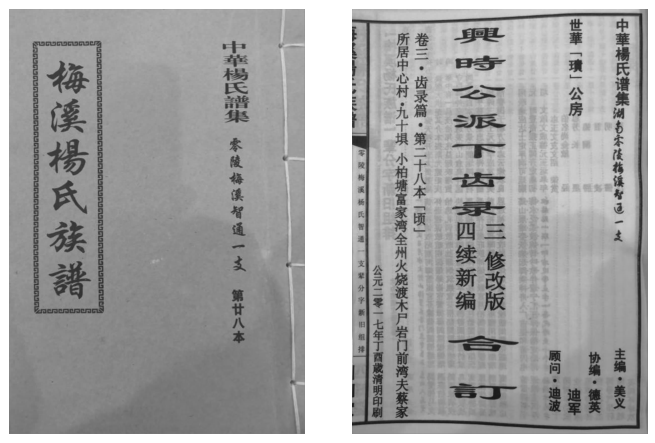 中華楊氏譜集
零陵梅溪智通一支 第廿八本
梅溪楊氏族譜
中华楊氏谱集 湖南零陵梅溪智通一支
世華「璝」公房
主编·美义
协编·德英
迪军
顾问·迪波
興時公派下齿录 三修改版 四续新编 合訂
卷三·齿录篇·第二十八本「顷」
所居中心村·九十埧 小柏塘富家湾全州火烧渡木尸岩门前湾夫蔡家
公元二零一七年丁酉歲清明印刷
零陵梅溪杨氏智通一支